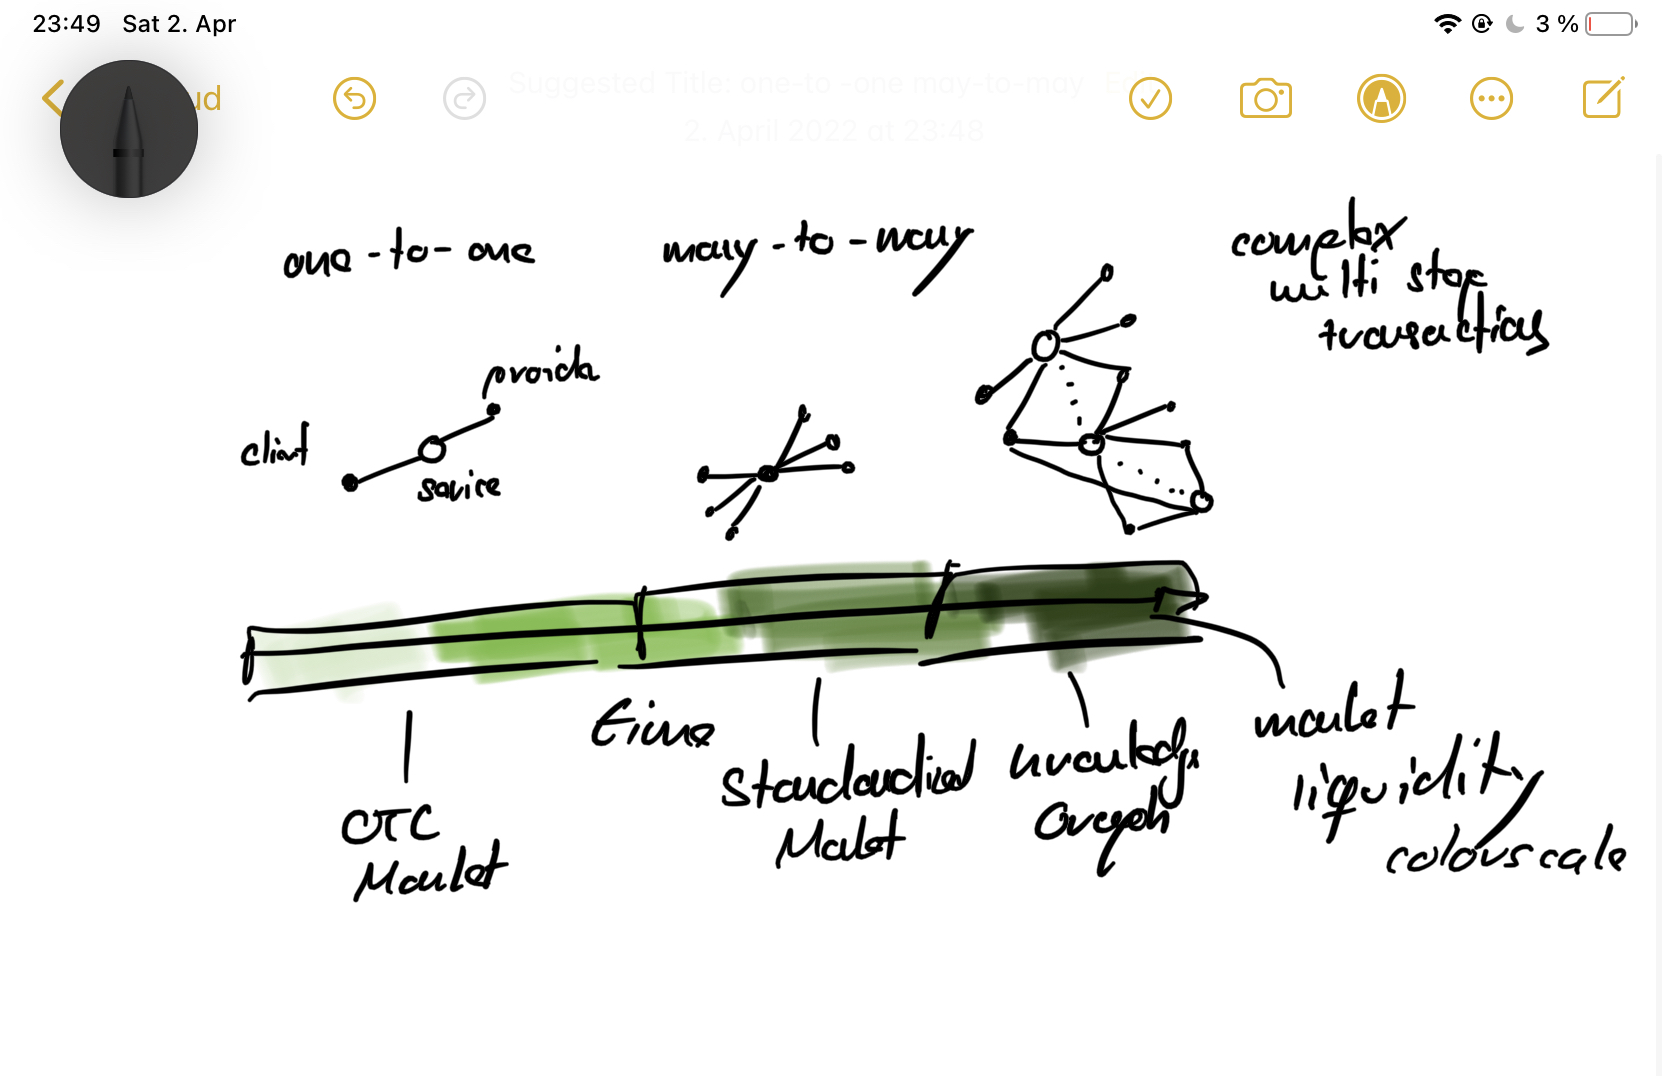 23:49 Sat 2. Apr
3 %
ud
Suggested Title: one-to -one may-to-may
2. April 2022 at 23:48
one-to-one
many-to-many
complex
multi step
transactions
provider
client
service
time
OTC
Market
Standardized
Market
knowledge
Graph
market
liquidity
colour scale